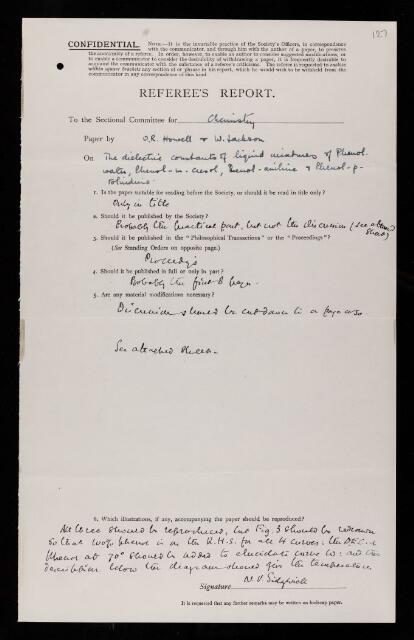 127
CONFIDENTIAL. NOTE.—It is the invariable practice of the Society's Officers, in correspondence
with the communicator, and through him with the author of a paper, to preserve
the anonymity of a referee. In order, however, to enable an author to consider suggested modifications, or
to enable a communicator to consider the desirability of withdrawing a paper, it is frequently desirable to
acquaint the communicator with the substance of a referee's criticisms. The referee is requested to enclose
within square brackets any section or phrase in his report, which he would wish to be withheld from the
communicator in any correspondence of this kind.
REFEREE'S REPORT.
To the Sectional Committee for Chemistry
Paper by O.R. Howell & W. Jackson
On The dielectric constants of liquid mixtures of Phenol-
water, Phenol-m-cresol, Phenol-aniline & Phenol-p-
toluidine.
1. Is the paper suitable for reading before the Society, or should it be read in title only?
Only in title
2. Should it be published by the Society?
Probably the practical part, but not the discussion (see attached
sheet)
3. Should it be published in the "Philosophical Transactions" or the "Proceedings"?
(See Standing Orders on opposite page.)
Proceedings
4. Should it be published in full or only in part?
Probably the first 8 pages.
5. Are any material modifications necessary?
Discussion should be cut down to a page or so.
See attached sheet.
6. Which illustrations, if any, accompanying the paper should be reproduced?
All three should be reproduced, but Fig. 3 should be redrawn
so that 100% phenol is on the R.H.S. for all 4 curves: the D.E.C. of
phenol at 70° should be added to elucidate curve : and the
description below the diagram should give the temperature.
Signature N. V. Sidgwick
It is requested that any further remarks may be written on the opposite page.